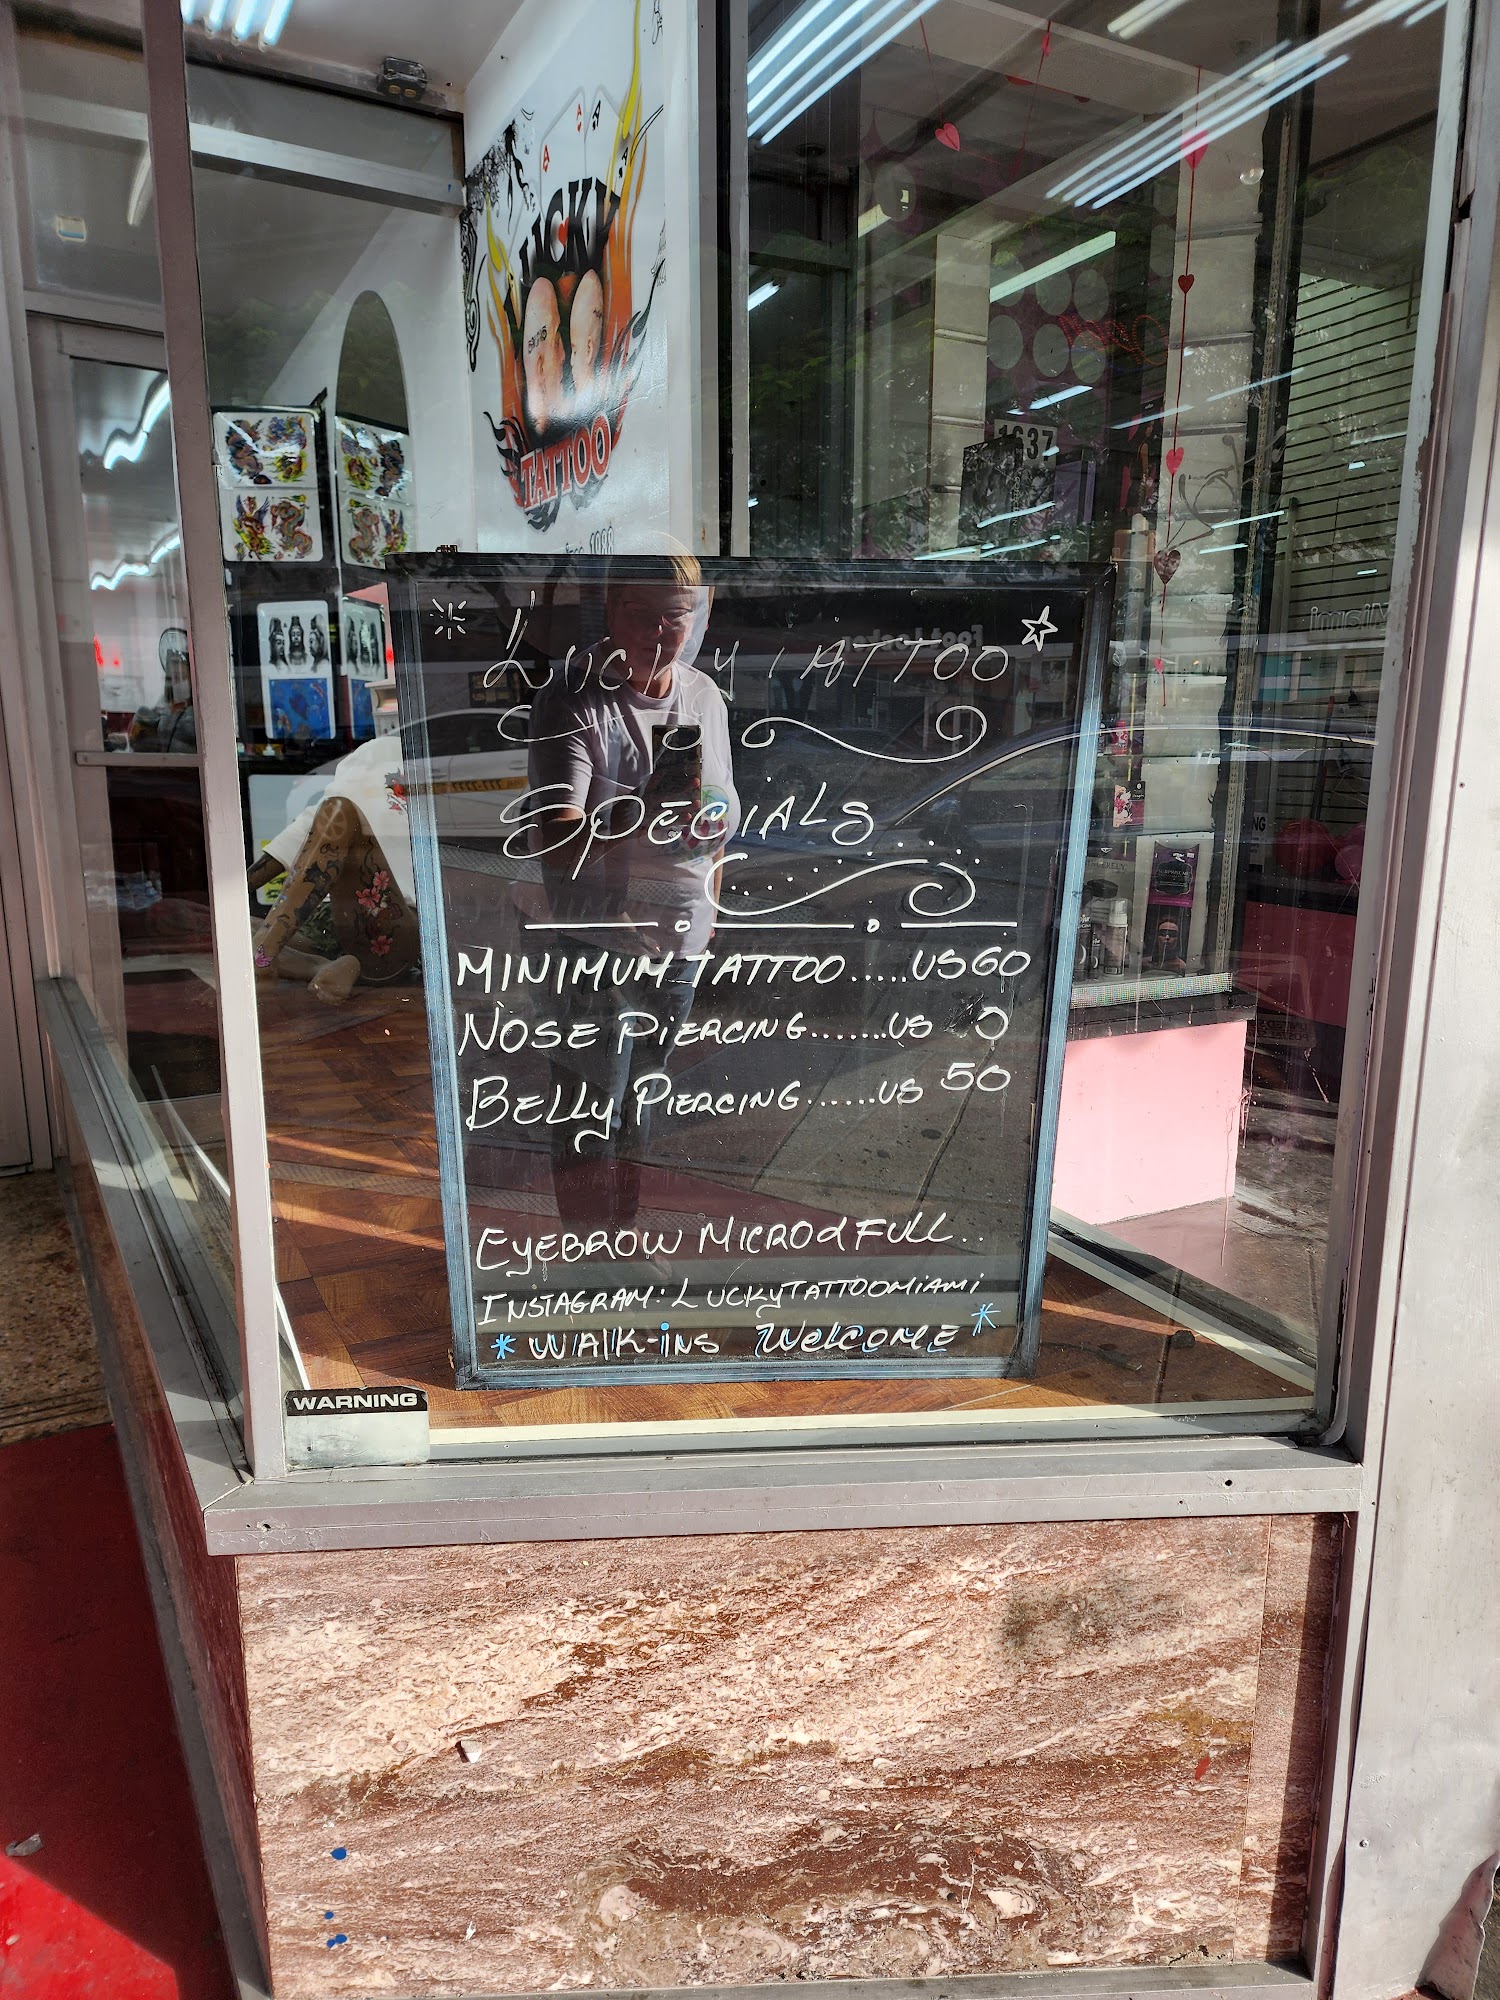 LUCKY
TATTOO
Since 1988
1637
LUCKY TATTOO
SPECIALS
MINIMUM TATTOO.....US60
NOSE PIERCING.......US 0
BELLY PIERCING......US 50
EYEBROW MICRO & FULL..
INSTAGRAM: LUCKYTATTOOMIAMI
* WALK-INS WELCOME *
WARNING